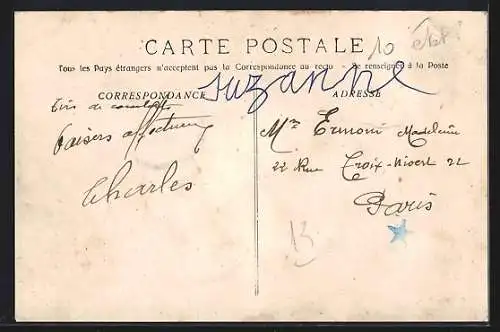 CARTE POSTALE
10
Tous les Pays étrangers n'acceptent pas la Correspondance au recto - Se renseigner à la Poste
suzanne
CORRESPONDANCE
ADRESSE
de
Baisers affectueux
Charles
Mme Ermoni Madeleine
22 Rue Croix-Nivert 22
Paris
13